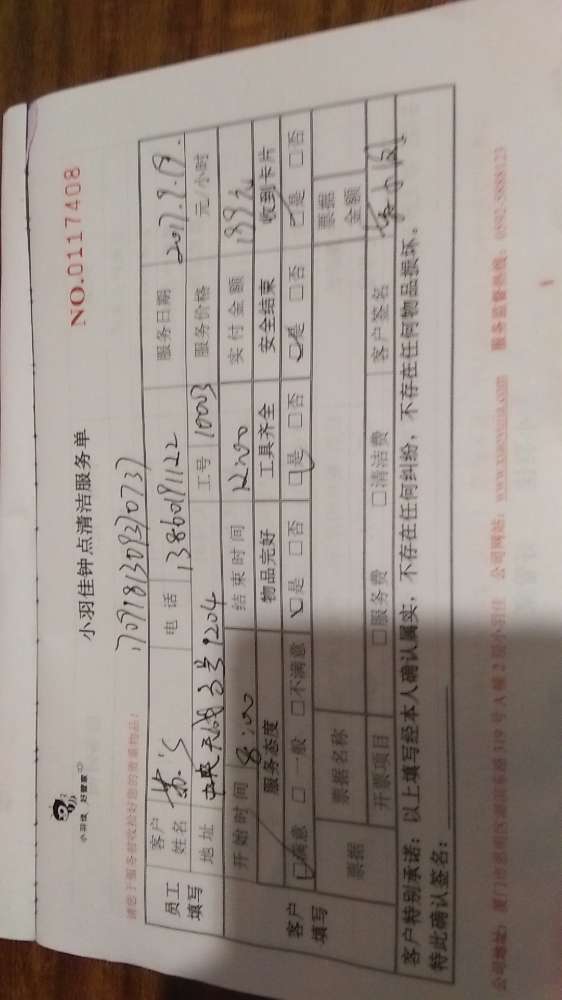 小羽佳 好管家
小羽佳钟点清洁服务单
NO.0117408
请您于服务前收捡好您的贵重物品!
员工填写
客户姓名
电话 13860191122
服务日期 2017.9.19.
地址 中央天成3号1204
工号 10003
服务价格 元/小时
开始时间 8:00
结束时间 12:00
实付金额 199元
客户填写
服务态度 物品完好 工具齐全 安全结束 收到卡片
□满意 □一般 □不满意 □是 □否 □是 □否 □是 □否 □是 □否
票据 票据名称 票据金额
开票项目 □服务费 □清洁费 客户签名
客户特别承诺:以上填写经本人确认属实,不存在任何纠纷,不存在任何物品损坏。
特此确认签名:
公司地址:厦门市思明区湖滨东路319号A幢2层小羽佳 公司网站:www.xiaoyujia.com 服务监督热线:0592-8888123